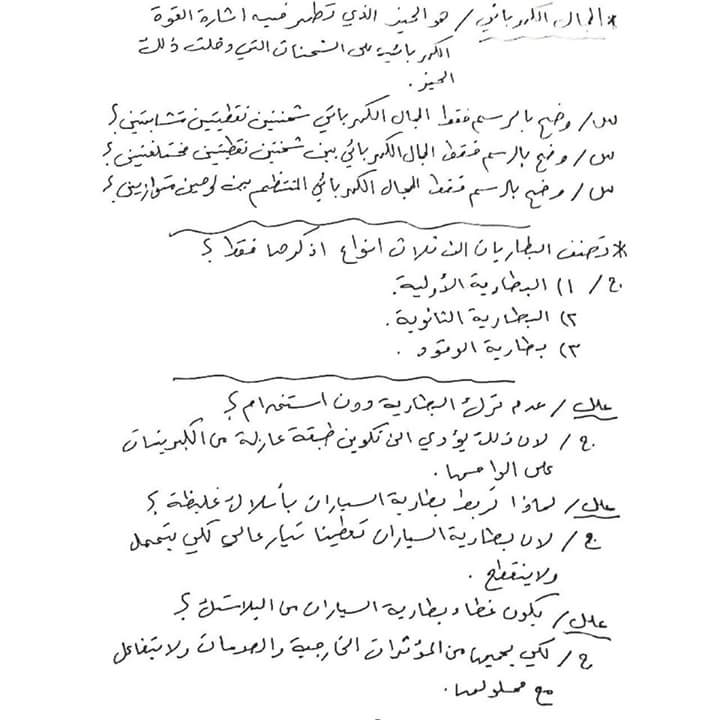 * المجال الكهربائي / هو الحيز الذي تظهر فيه اشارة القوة
الكهربائية على الشحنات التي دخلت ذلك
الحيز .
س / وضح بالرسم فقط المجال الكهربائي شحنتين نقطيتين متشابهتين ؟
س / وضح بالرسم فقط المجال الكهربائي بين شحنتين نقطيتين مختلفتين ؟
س / وضح بالرسم فقط المجال الكهربائي المنتظم بين لوحين متوازيين ؟
* تصنف البطاريات الى ثلاث انواع اذكرها فقط ؟
ج / ١) البطارية الأولية.
٢) البطارية الثانوية.
٣) بطارية الوقود .
علل / عدم ترك البطارية دون استخدام ؟
ج / لان ذلك يؤدي الى تكوين طبقة عازلة من الكبريتات
على الواحها.
علل / لماذا تربط بطارية السيارات بأسلاك غليظة ؟
ج / لان بطارية السيارات تعطينا تيار عالي لكي يتحمل
ولا ينقطع .
علل / يكون غطاء بطارية السيارات من البلاستك ؟
ج / لكي يحميها من المؤثرات الخارجية والصدمات ولا يتفاعل
مع محلولها.